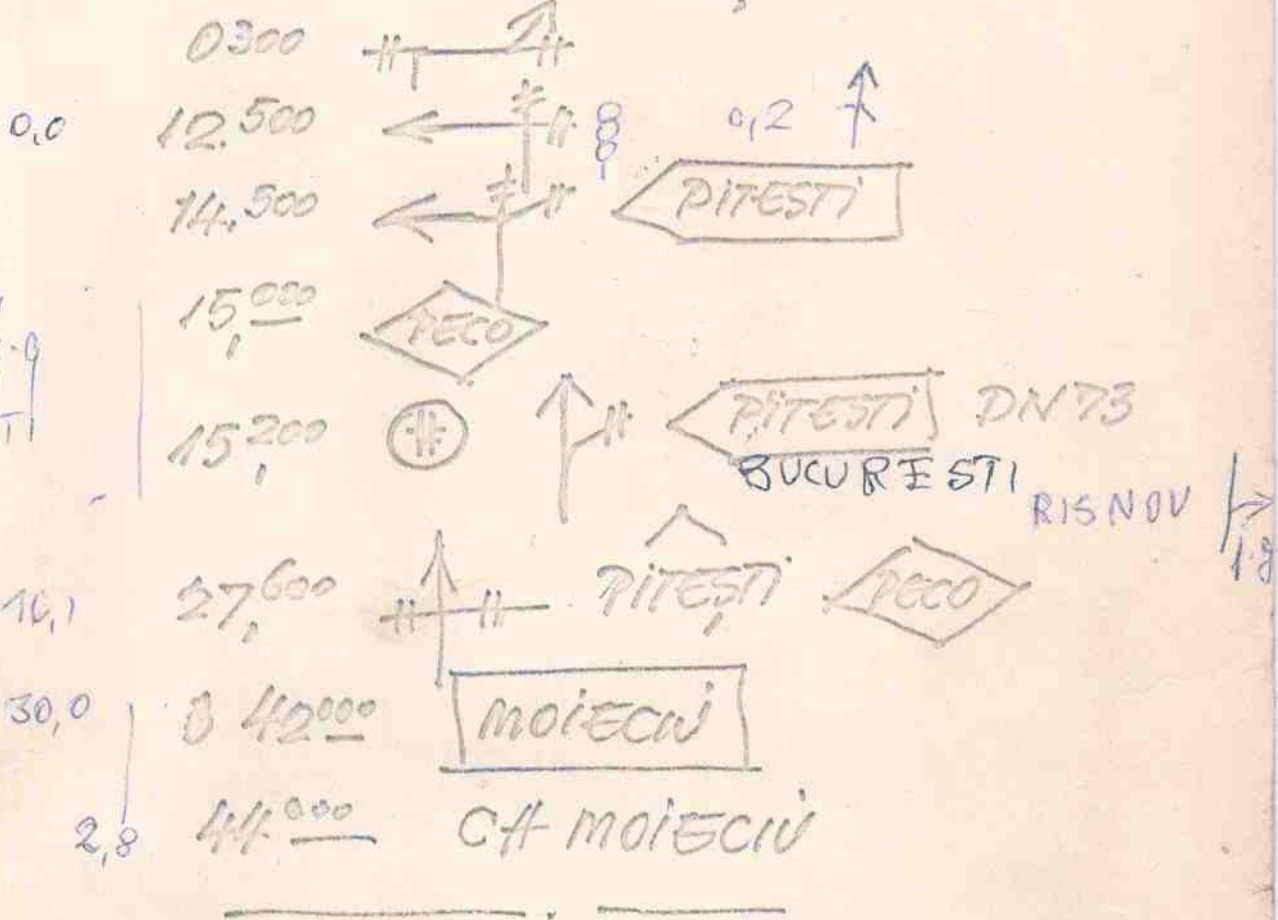 0300
0,0 12.500 0,2 PITESTI
14.500
15,000 PECO
15,200 PITESTI DN73
BUCURESTI
RISNOV
27,600 PITEȘTI PECO
30,0 42000 MOIECIU
2,8 44.000 CH MOIECIU